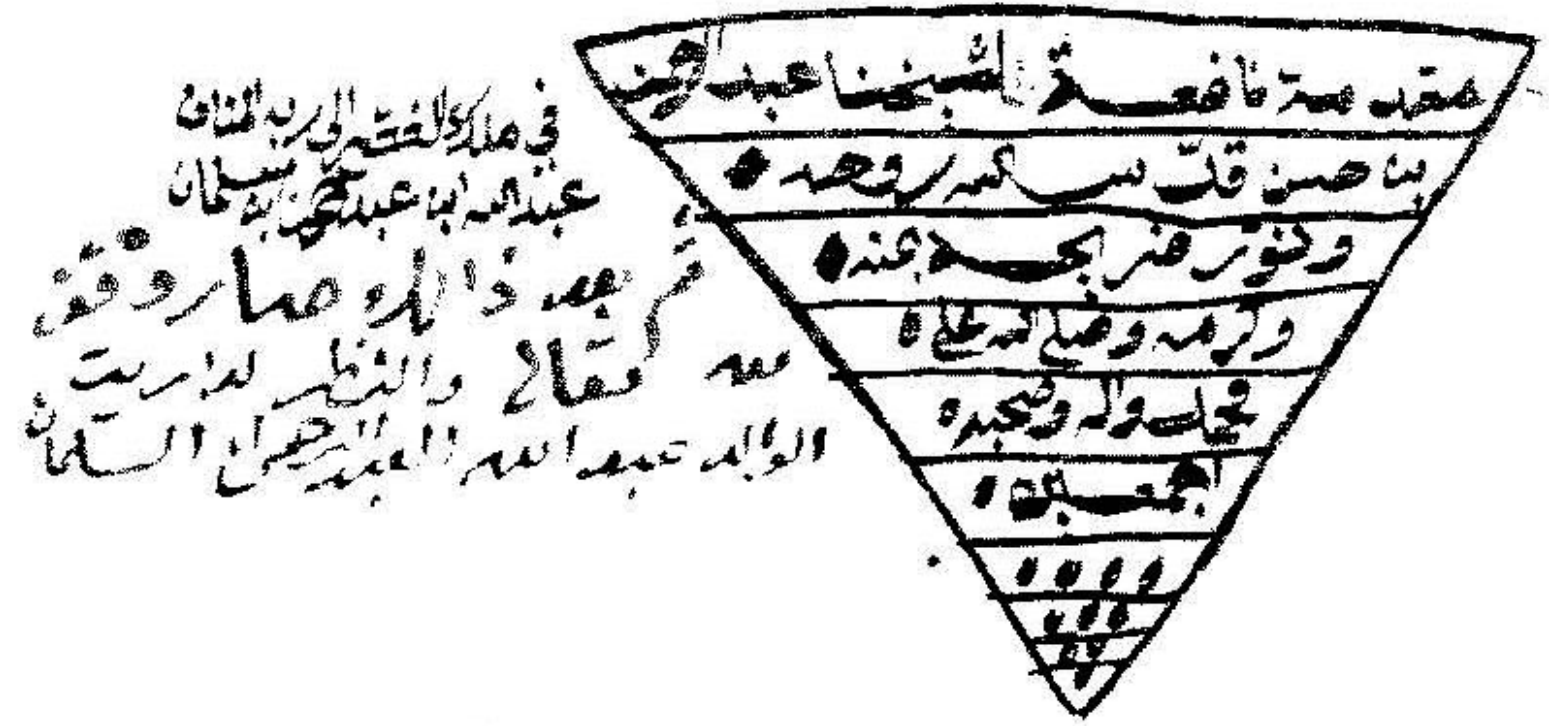 مقدمة نافعة لشيخنا عبدالرحمن
بن حسن قدس الله روحه
ونور ضريحه بمنه
وكرمه وصلى الله على
محمد واله وصحبه
اجمعين
في ملك الفقير الى ربه المنان
عبدالله ابن عبدالرحمن بن سلمان
ثم بعد ذالك صار وقف
لله تعالى والنظر لذريت
الوالد عبد الله العبد الرحمن السلمان